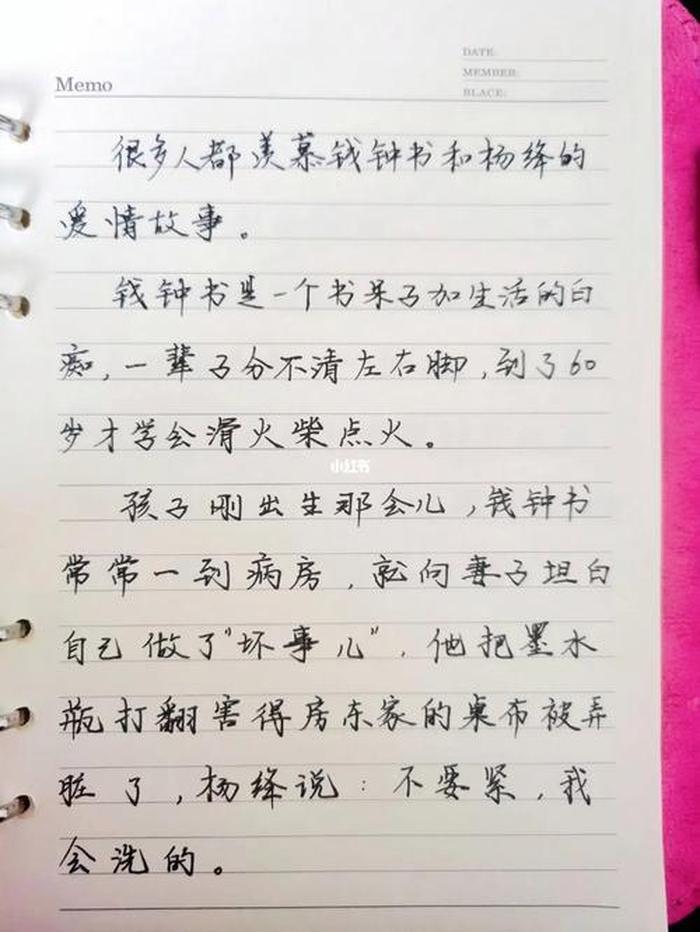 Memo
DATE:
MEMBER:
BLACE:
很多人都羡慕钱钟书和杨绛的
爱情故事。
钱钟书是一个书呆子加生活的白
痴，一辈子分不清左右脚，到了60
岁才学会滑火柴点火。
小红书
孩子刚出生那会儿，钱钟书
常常一到病房，就向妻子坦白
自己做了"坏事儿"，他把墨水
瓶打翻害得房东家的桌布被弄
脏了，杨绛说：不要紧，我
会洗的。